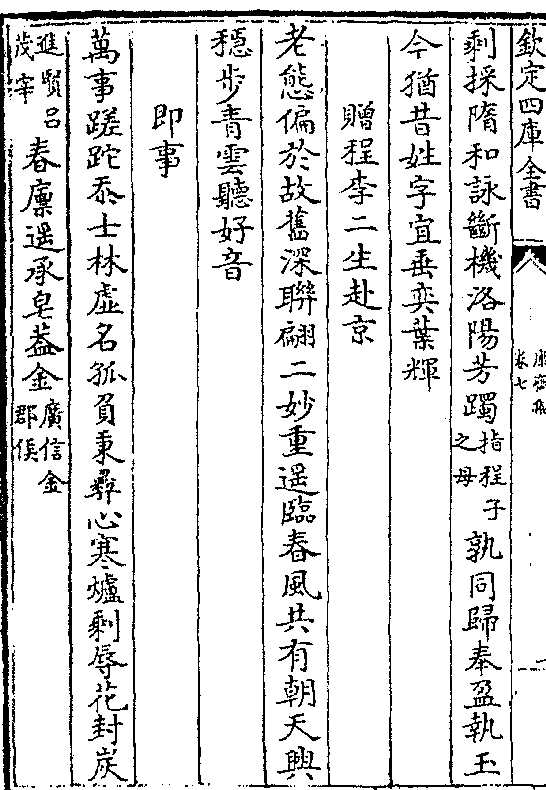 欽定四庫全書
卷七
剩採隋和詠斷機洛陽芳躅指程子之母孰同歸奉盈執玉
今猶昔姓字宜垂奕葉輝
贈程李二生赴京
老態偏於故舊深聯翩二妙重遥臨春風共有朝天興
穩步青雲聽好音
即事
萬事蹉跎忝士林虛名孤負秉彞心寒爐剩辱花封炭
進賢呂茂宰春廩遥承皂葢金廣信金郡侯